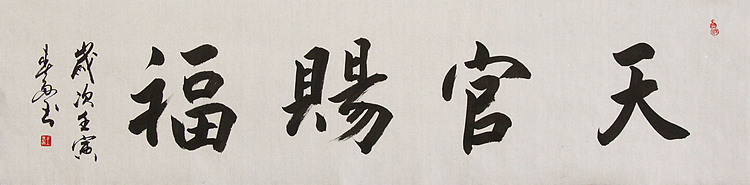 天官賜福
歲次壬寅